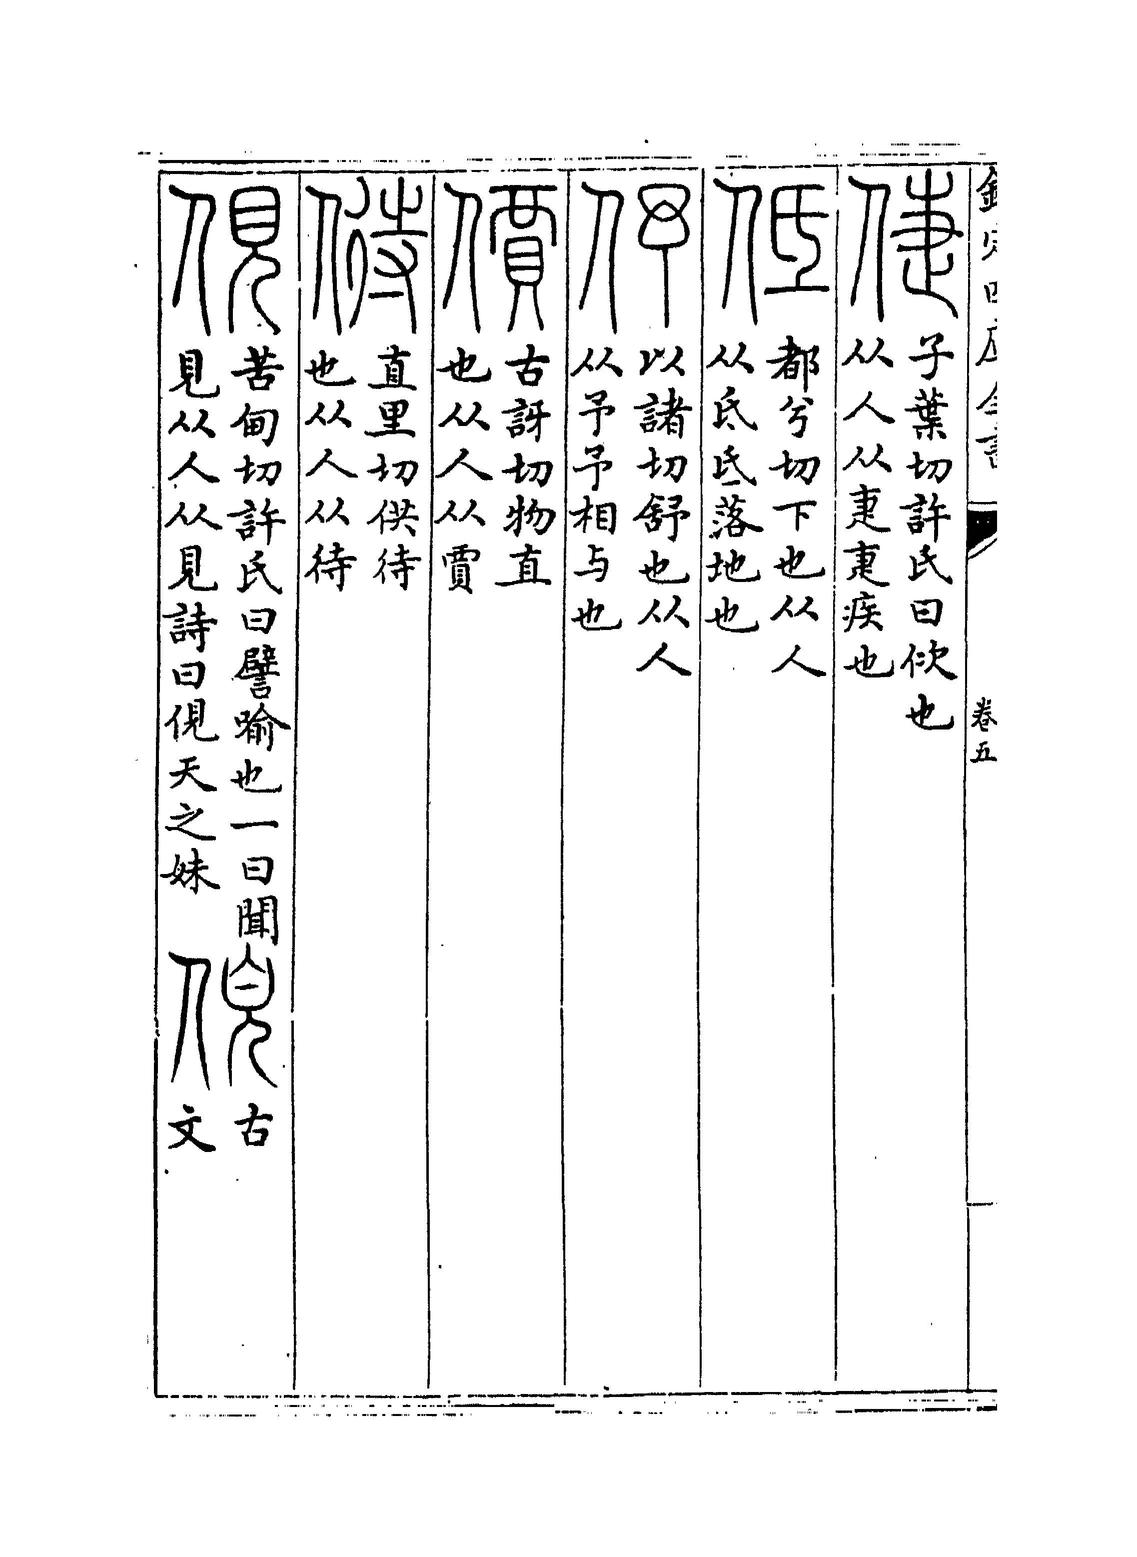 欽定四庫全書
卷五
倢
子葉切許氏曰佽也
从人从疌疌疾也
低
都兮切下也从人
从氐氐落地也
伃
以諸切舒也从人
从予予相与也
價
古訝切物直
也从人从賈
偫
直里切供待
也从人从待
俔
苦甸切許氏曰譬喻也一曰聞
見从人从見詩曰俔天之妹
古
文